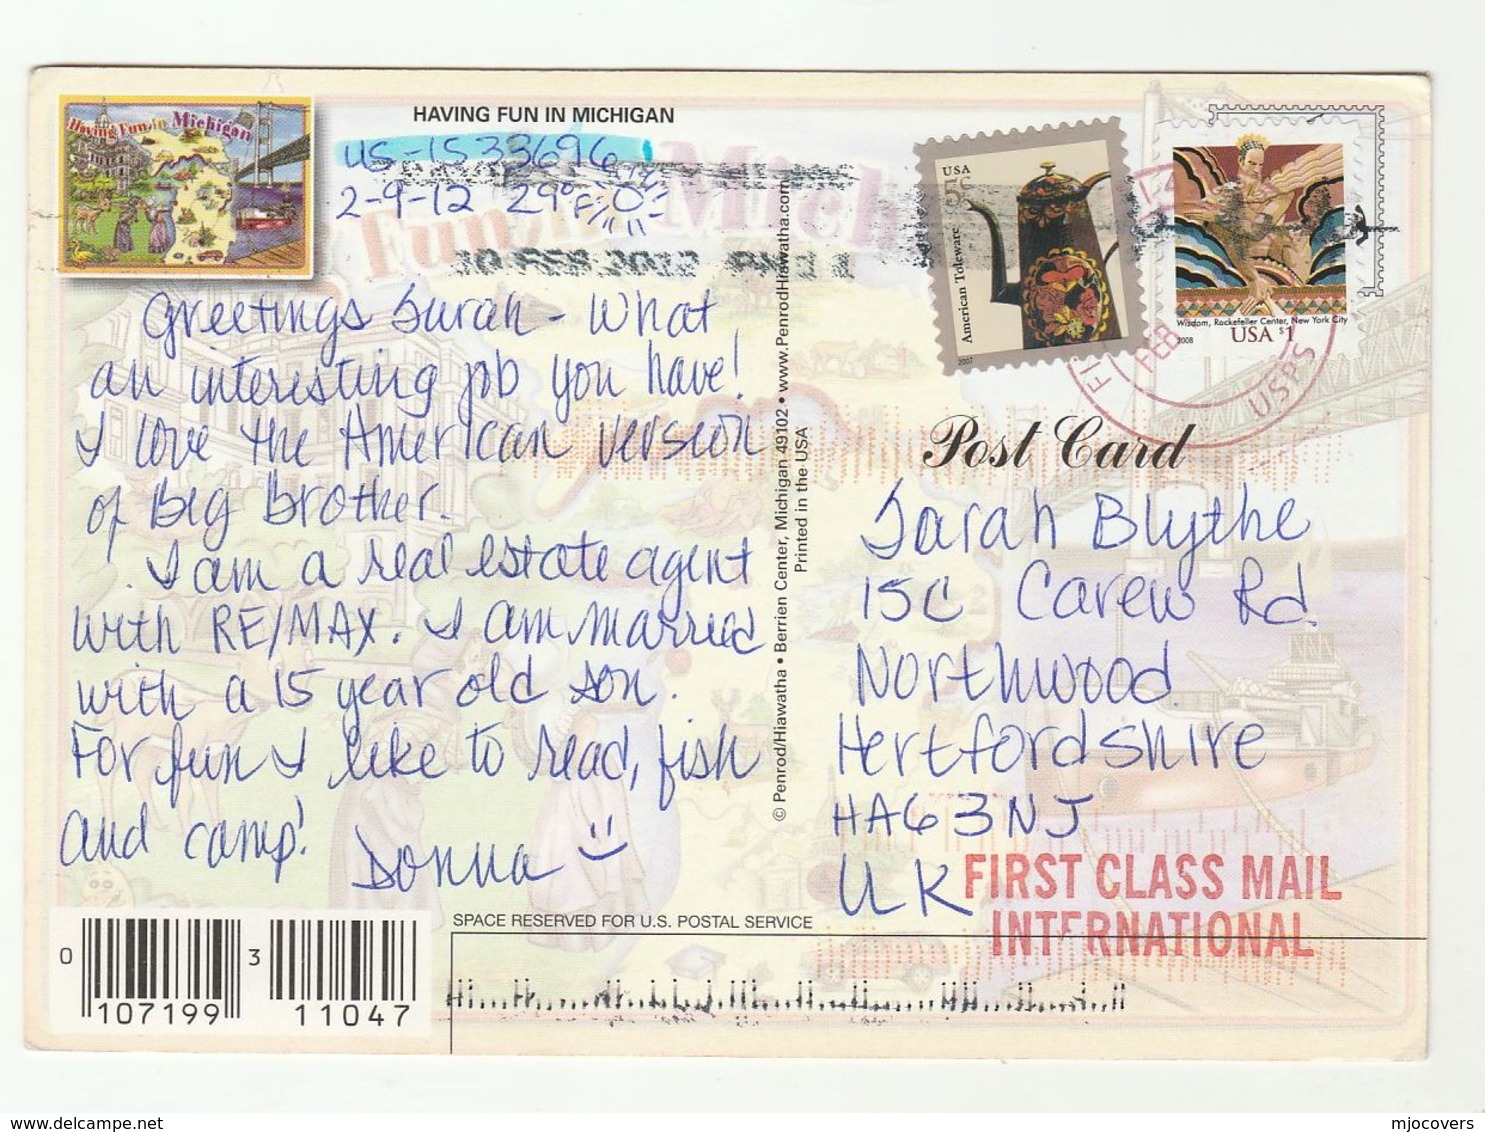 Having Fun in Michigan
HAVING FUN IN MICHIGAN
US-1533696
2-9-12 29°F
10 FEB 2012 PM
Greetings Surah - What
an interesting job you have!
I love the American version
of Big Brother.
I am a real estate agent
with RE/MAX. I am married
with a 15 year old son.
For fun I like to read, fish
and camp!
Donna
0 107199 3 11047
© Penrod/Hiawatha • Berrien Center, Michigan 49102 • www.PenrodHiawatha.com
Printed in the USA
USA
5¢
American Toleware
2007
Wisdom, Rockefeller Center, New York City
2008 USA $1
FEB
USPS
Post Card
Sarah Blythe
15C Carew Rd.
Northwood
Hertfordshire
HA6 3NJ
UK
FIRST CLASS MAIL
INTERNATIONAL
SPACE RESERVED FOR U.S. POSTAL SERVICE
www.delcampe.net
mjocovers